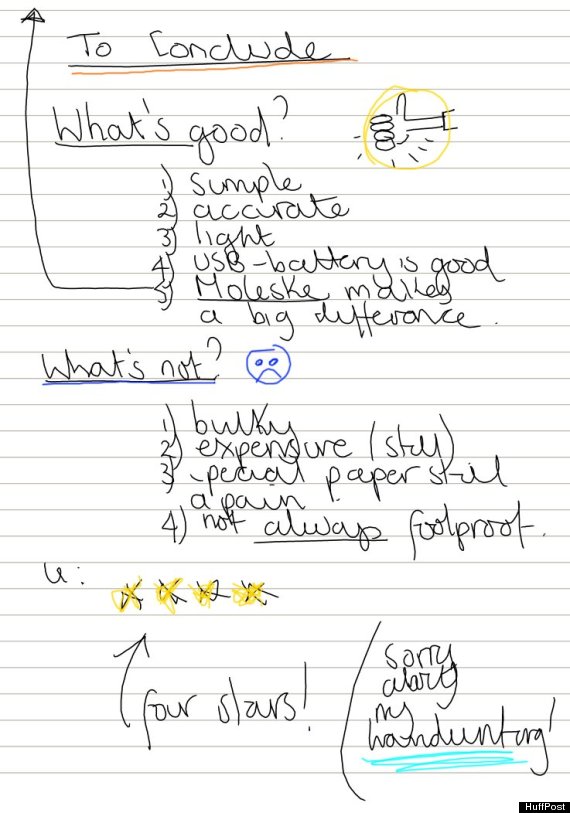 To Conclude
What's good?
1) simple
2) accurate
3) light
4) USB-battery is good
5) Moleske makes
a big difference.
What's not?
1) bulky
2) expensive (still)
3) special paper still
a pain.
4) not always foolproof.
:
four stars!
(sorry
about
my
handwriting!
HuffPost